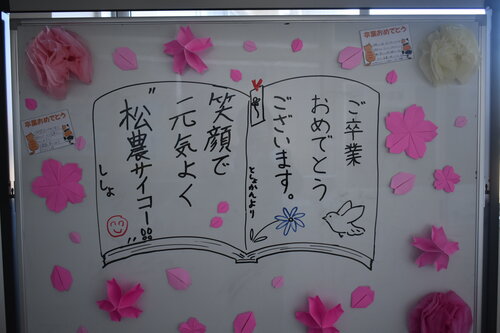 卒業おめでとう
ご卒業
おめでとう
ございます。
としかんより
笑顔で
元気よく
"松農サイコー!!
ししょ
卒業おめでとう